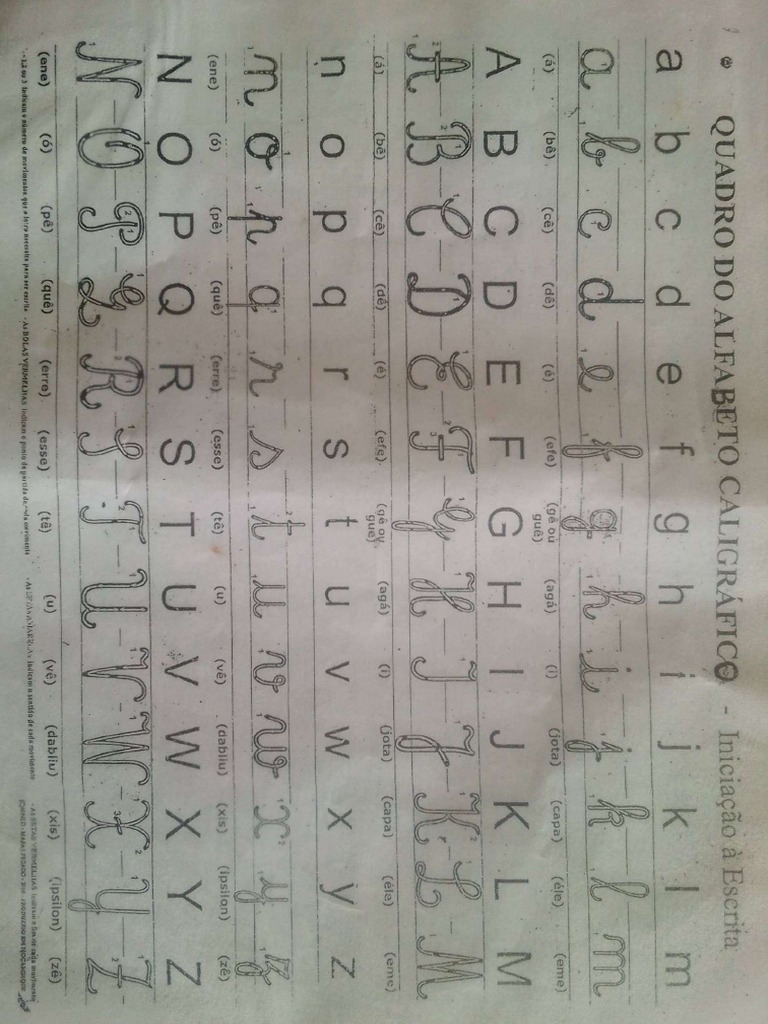 QUADRO DO ALFABETO CALIGRÁFICO - Iniciação à Escrita
a b c d e f g h i j k l m
a b c d e f g h i j k l m
(á) (bê) (cê) (dê) (é) (efe) (gê ou guê) (agá) (i) (jota) (capa) (éle) (eme)
A B C D E F G H I J K L M
A B C D E F G H I J K L M
(á) (bê) (cê) (dê) (é) (efe) (gê ou guê) (agá) (i) (jota) (capa) (éle) (eme)
n o p q r s t u v w x y z
n o p q r s t u v w x y z
(ene) (ó) (pê) (quê) (erre) (esse) (tê) (u) (vê) (dabliu) (xis) (ípsilon) (zê)
N O P Q R S T U V W X Y Z
N O P Q R S T U V W X Y Z
(ene) (ó) (pê) (quê) (erre) (esse) (tê) (u) (vê) (dabliu) (xis) (ípsilon) (zê)
- 1,2 ou 3 Indicam o número de movimentos que a letra necessita para ser escrita - As BOLAS VERMELHAS indicam o ponto de partida de cada movimento - As SETAS VERMELHAS indicam o fim de cada movimento